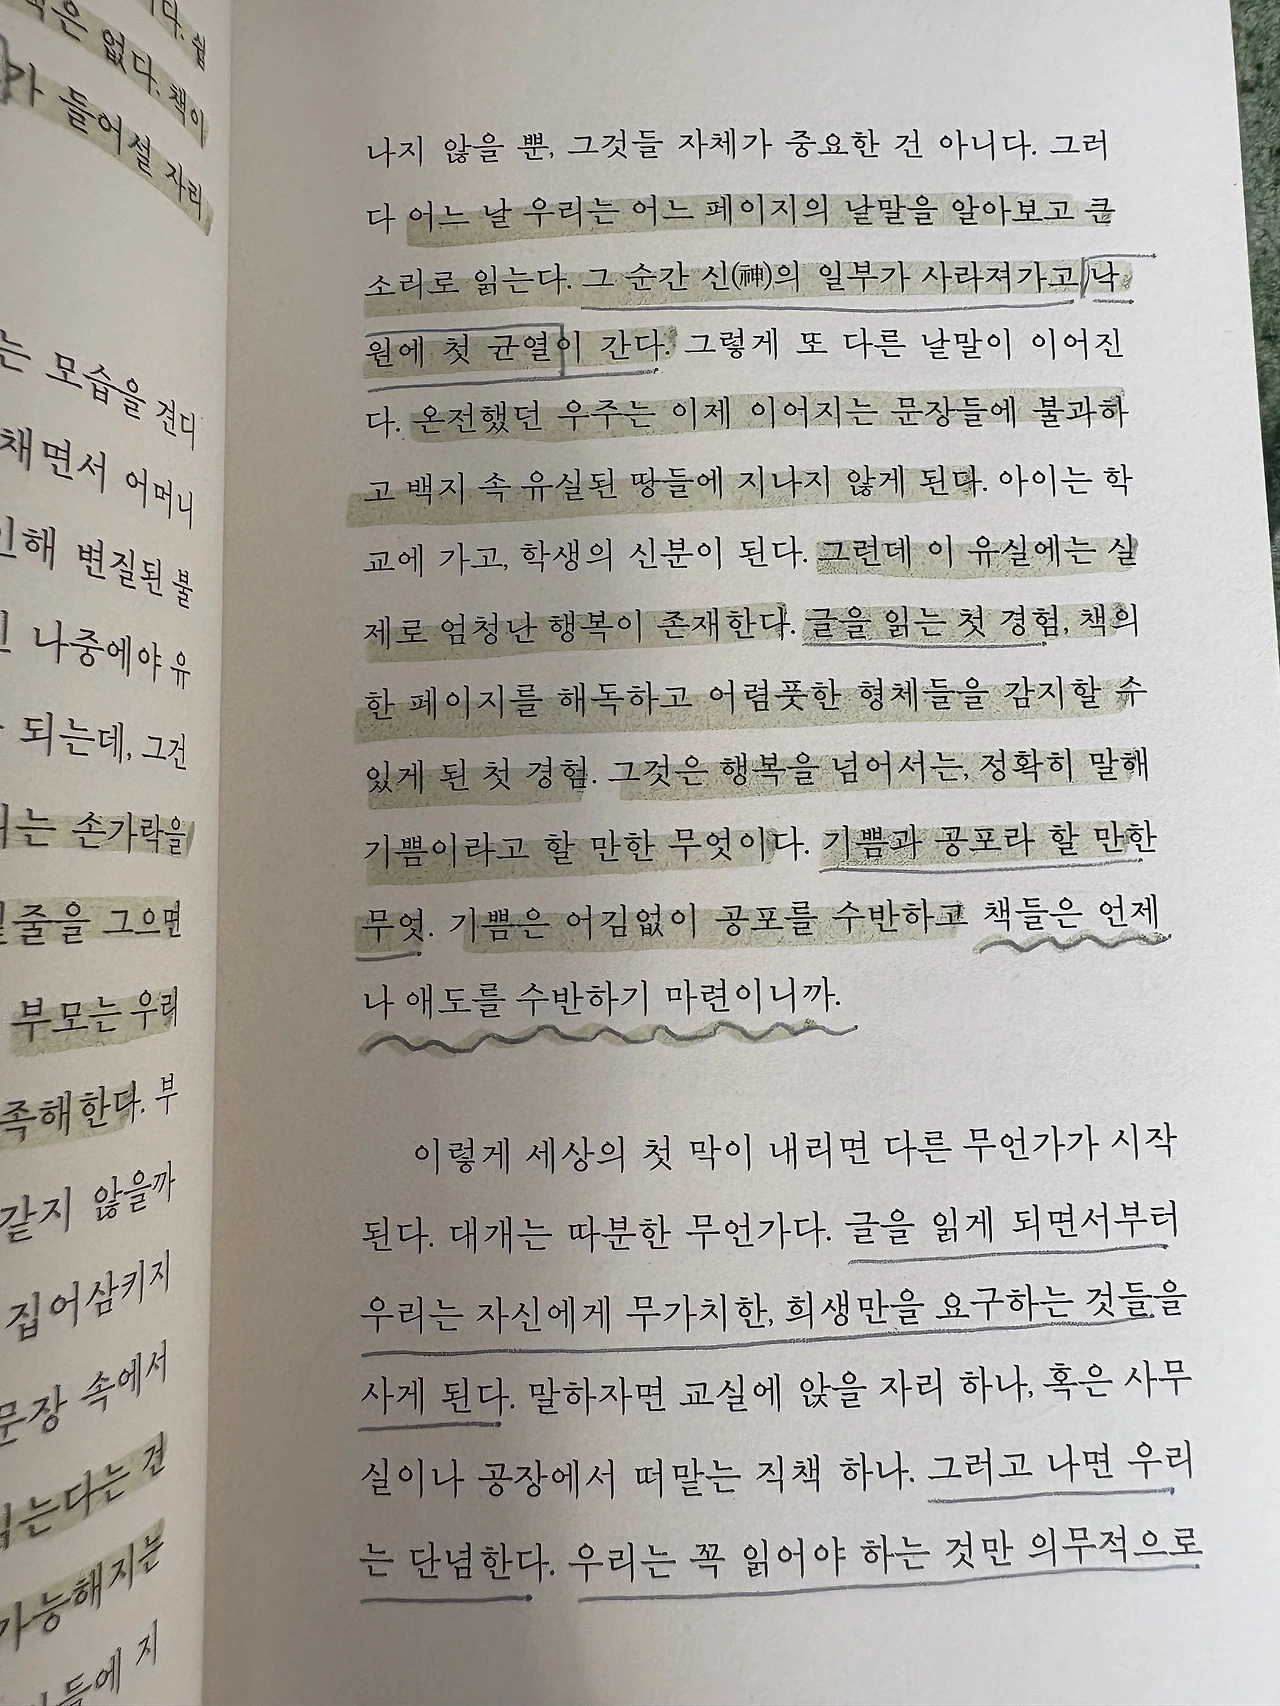 다. 쉽
은 없다. 책이
가 들어설 자리
는 모습을 견디
채면서 어머니
인해 변질된 불
나중에야 유
되는데, 그건
는 손가락을
줄을 그으면
부모는 우리
족해한다. 부
같지 않을까
집어삼키지
문장 속에서
는다는 건
가능해지는
들에 지
나지 않을 뿐, 그것들 자체가 중요한 건 아니다. 그러
다 어느 날 우리는 어느 페이지의 낱말을 알아보고 큰
소리로 읽는다. 그 순간 신(神)의 일부가 사라져가고 낙
원에 첫 균열이 간다. 그렇게 또 다른 낱말이 이어진
다. 온전했던 우주는 이제 이어지는 문장들에 불과하
고 백지 속 유실된 땅들에 지나지 않게 된다. 아이는 학
교에 가고, 학생의 신분이 된다. 그런데 이 유실에는 실
제로 엄청난 행복이 존재한다. 글을 읽는 첫 경험, 책의
한 페이지를 해독하고 어렴풋한 형체들을 감지할 수
있게 된 첫 경험. 그것은 행복을 넘어서는, 정확히 말해
기쁨이라고 할 만한 무엇이다. 기쁨과 공포라 할 만한
무엇. 기쁨은 어김없이 공포를 수반하고 책들은 언제
나 애도를 수반하기 마련이니까.
이렇게 세상의 첫 막이 내리면 다른 무언가가 시작
된다. 대개는 따분한 무언가다. 글을 읽게 되면서부터
우리는 자신에게 무가치한, 희생만을 요구하는 것들을
사게 된다. 말하자면 교실에 앉을 자리 하나, 혹은 사무
실이나 공장에서 떠맡는 직책 하나. 그러고 나면 우리
는 단념한다. 우리는 꼭 읽어야 하는 것만 의무적으로